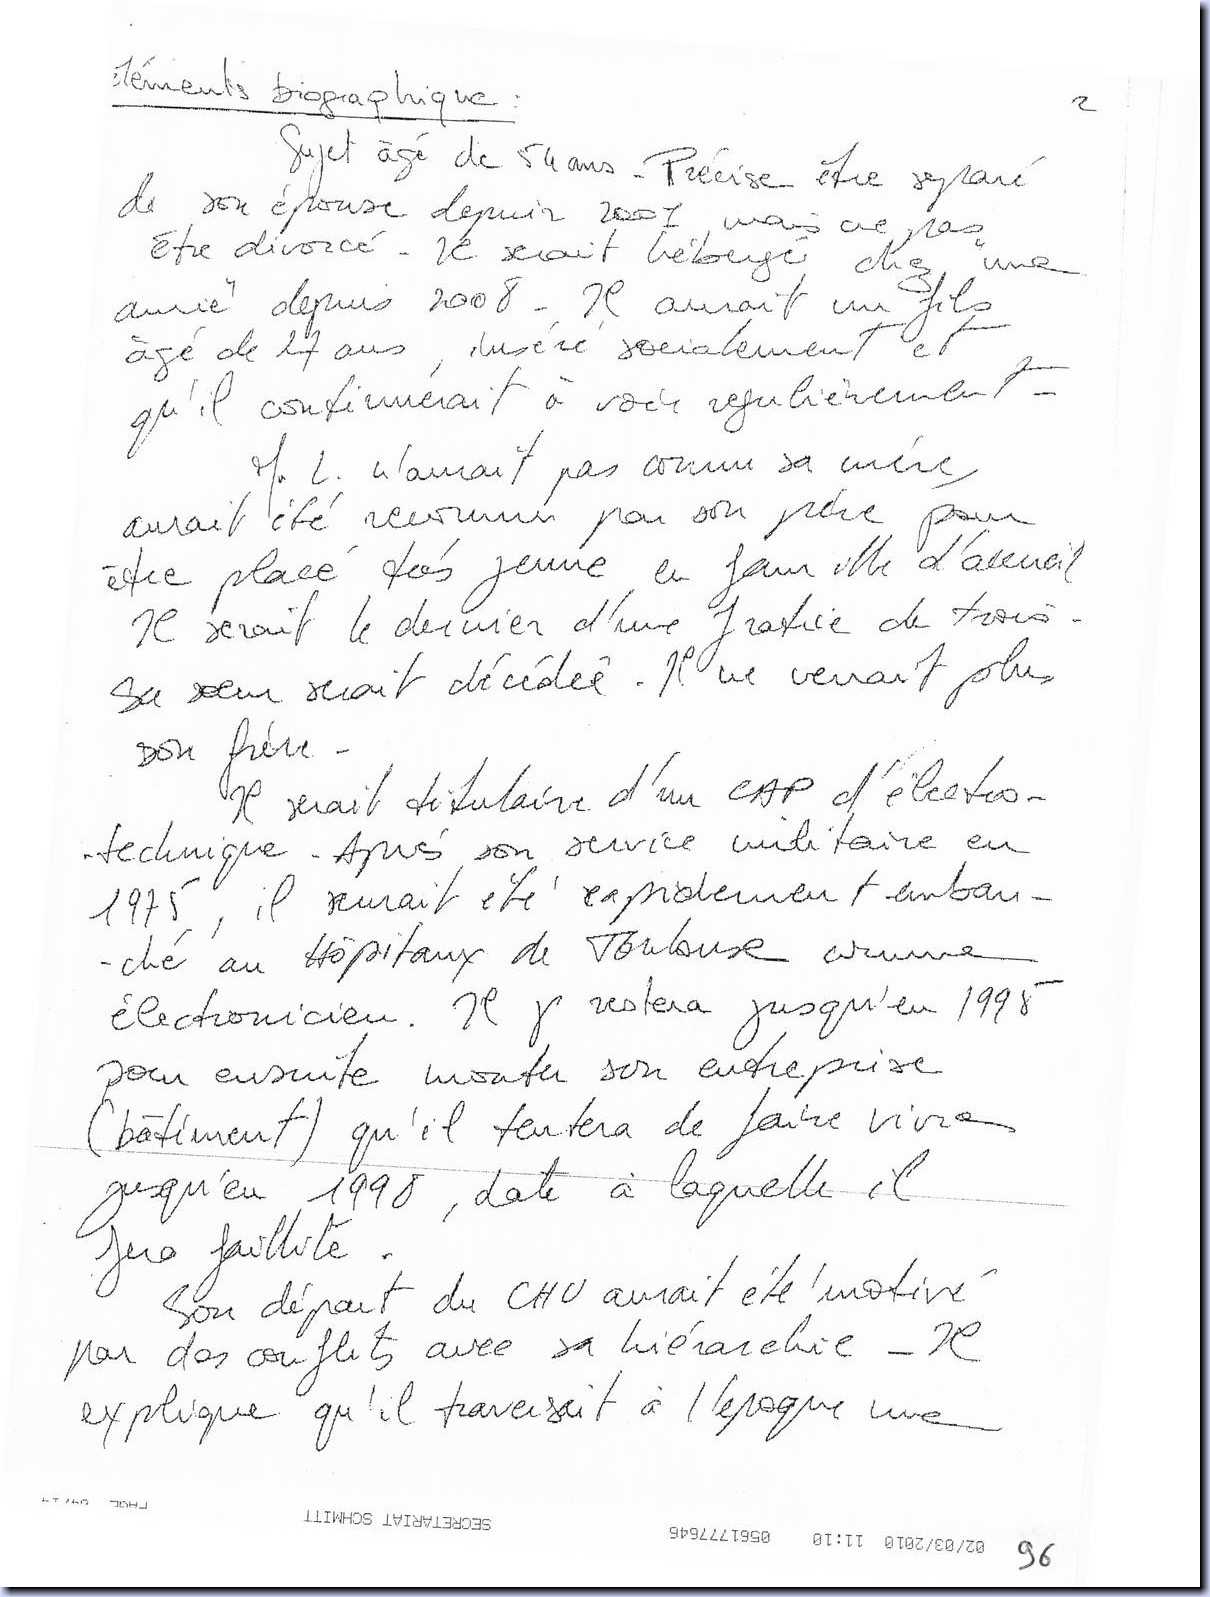 éléments biographique :
2
Sujet âgé de 54 ans - Précise être séparé
de son épouse depuis 2007 mais ne pas
être divorcé - Il serait hébergé chez "une
amie" depuis 2008 - Il aurait un fils
âgé de 27 ans, inséré socialement et
qu'il continuerait à voir régulièrement -
M. L. n'aurait pas connu sa mère,
aurait été reconnu par son père pour
être placé très jeune en famille d'accueil
Il serait le dernier d'une fratrie de trois -
Sa soeur serait décédée - Il ne verrait plus
son frère -
Il serait titulaire d'un CAP d'électro-
-technique - Après son service militaire en
1975, il aurait été rapidement embau-
-ché au Hôpitaux de Toulouse comme
électronicien. Il y restera jusqu'en 1995
pour ensuite monter son entreprise
(bâtiment) qu'il tentera de faire vivre
jusqu'en 1998, date à laquelle il
fera faillite.
Son départ du CHU aurait été motivé
par des conflits avec sa hiérarchie - Il
explique qu'il traversait à l'époque une
96
02/03/2010 11:10 0561777646 SECRETARIAT SCHMITT PAGE